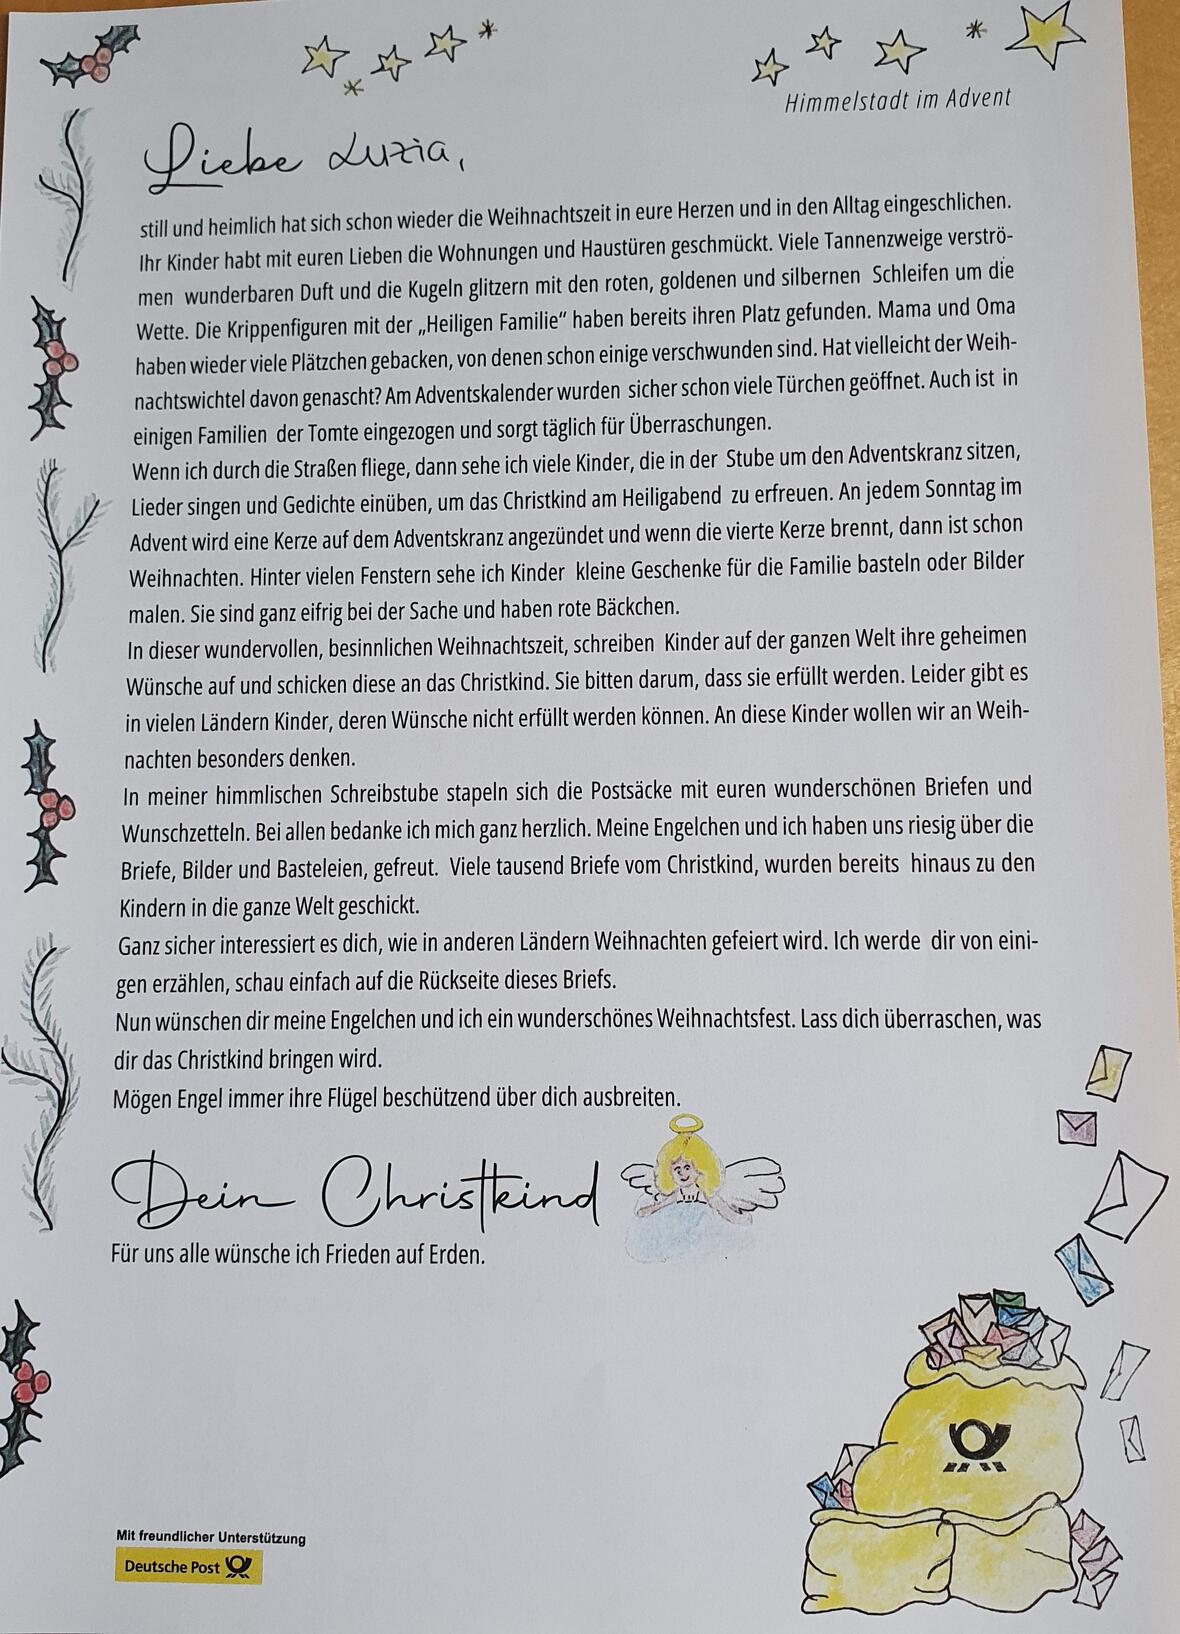 Himmelstadt im Advent
Liebe Luzia,
still und heimlich hat sich schon wieder die Weihnachtszeit in eure Herzen und in den Alltag eingeschlichen.
Ihr Kinder habt mit euren Lieben die Wohnungen und Haustüren geschmückt. Viele Tannenzweige verströ-
men wunderbaren Duft und die Kugeln glitzern mit den roten, goldenen und silbernen Schleifen um die
Wette. Die Krippenfiguren mit der „Heiligen Familie“ haben bereits ihren Platz gefunden. Mama und Oma
haben wieder viele Plätzchen gebacken, von denen schon einige verschwunden sind. Hat vielleicht der Weih-
nachtswichtel davon genascht? Am Adventskalender wurden sicher schon viele Türchen geöffnet. Auch ist in
einigen Familien der Tomte eingezogen und sorgt täglich für Überraschungen.
Wenn ich durch die Straßen fliege, dann sehe ich viele Kinder, die in der Stube um den Adventskranz sitzen,
Lieder singen und Gedichte einüben, um das Christkind am Heiligabend zu erfreuen. An jedem Sonntag im
Advent wird eine Kerze auf dem Adventskranz angezündet und wenn die vierte Kerze brennt, dann ist schon
Weihnachten. Hinter vielen Fenstern sehe ich Kinder kleine Geschenke für die Familie basteln oder Bilder
malen. Sie sind ganz eifrig bei der Sache und haben rote Bäckchen.
In dieser wundervollen, besinnlichen Weihnachtszeit, schreiben Kinder auf der ganzen Welt ihre geheimen
Wünsche auf und schicken diese an das Christkind. Sie bitten darum, dass sie erfüllt werden. Leider gibt es
in vielen Ländern Kinder, deren Wünsche nicht erfüllt werden können. An diese Kinder wollen wir an Weih-
nachten besonders denken.
In meiner himmlischen Schreibstube stapeln sich die Postsäcke mit euren wunderschönen Briefen und
Wunschzetteln. Bei allen bedanke ich mich ganz herzlich. Meine Engelchen und ich haben uns riesig über die
Briefe, Bilder und Basteleien, gefreut. Viele tausend Briefe vom Christkind, wurden bereits hinaus zu den
Kindern in die ganze Welt geschickt.
Ganz sicher interessiert es dich, wie in anderen Ländern Weihnachten gefeiert wird. Ich werde dir von eini-
gen erzählen, schau einfach auf die Rückseite dieses Briefs.
Nun wünschen dir meine Engelchen und ich ein wunderschönes Weihnachtsfest. Lass dich überraschen, was
dir das Christkind bringen wird.
Mögen Engel immer ihre Flügel beschützend über dich ausbreiten.
Dein Christkind
Für uns alle wünsche ich Frieden auf Erden.
Mit freundlicher Unterstützung
Deutsche Post